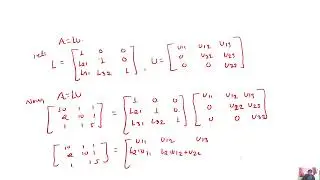 Let A=LU
L = [1 0 0; L21 1 0; L31 L32 1], U = [U11 U12 U13; 0 U22 U23; 0 0 U33]
Now, A=LU
[10 1 1; 2 10 1; 1 1 5] = [1 0 0; L21 1 0; L31 L32 1] [U11 U12 U13; 0 U22 U23; 0 0 U33]
[10 1 1; 2 10 1; 1 1 5] = [U11 U12 U13; L21U11 L21U12+U22